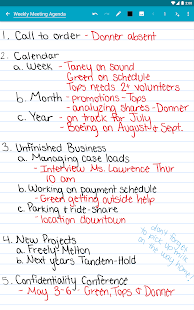 Weekly Meeting Agenda
1. Call to order - Donner absent
2. Calendar
a. Week - Taney on sound
Green on schedule
Tops needs 2+ volunteers
b. Month - promotions - Tops
- analyzing shares - Donner
c. Year - on track for July
- Boeing on August & Sept.
3. Unfinished Business
a. Managing case loads
- Interview Ms. Laurence Thur
10 am
b. Working on payment schedule
- Green getting outside help
c. Parking & ride-share
- location downtown
4. New Projects
a. Freely-Melton
b. Next years Tandem-Hold
5. Confidentiality Conference
- May 3-6 Green, Tops & Donner